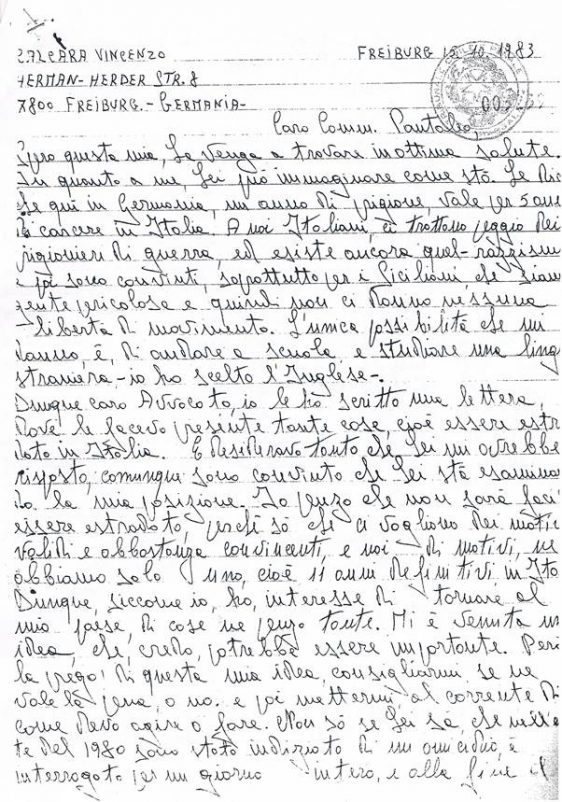 CALCARA VINCENZO FREIBURG 15.10.1983
HERMAN-HERDER STR. 8
7800 FREIBURG.- GERMANIA-
Caro Comm. Pantaleo,
questa mia, La venga a trovare in ottima salute.
In quanto a me, Lei può immaginare come stò. Le dic
che qui in Germania, un anno di prigione, vale per 5 ann
di carcere in Italia. A noi Italiani, ci trattono peggio dei
prigionieri di guerra, ed esiste ancora quel razzism
e poi sono convinti, soprattutto per i Siciliani, che siam
gente pericolosa e quindi non ci danno nessuna
libertà di movimento. L'unica possibilità che mi
danno, è, di andare a scuola e studiare una ling
straniera - io ho scelto l'Inglese -.
Dunque caro Avvocato, io le hò scritto una lettera,
dove le facevo presente tante cose, cioè essere estr
dato in Italia. E desideravo tanto che Lei mi avrebbe
risposto, comunque sono convinto che Lei stà esamina
do la mia posizione. Io penso che non sarà faci
essere estradato, perchè sò che ci vogliono dei motiv
validi e abbastanza convincenti, e noi di motivi, ne
abbiamo solo uno, cioè 11 anni definitivi in Ita
Dunque, siccome io, ho, interesse di tornare al
mio paese, di cose ne penso tante. Mi è venuta un
idea, che, credo, potrebbe essere importante. Però
la prego! di questa mia idea, consigliarmi se ne
vale la pena, o no. e poi mettermi al corrente di
come devo agire o fare. Non sò se Lei sà, che nell'e
te del 1980 sono stato indiziato di un omicidio, e
interrogato per un giorno intero, e alla fine